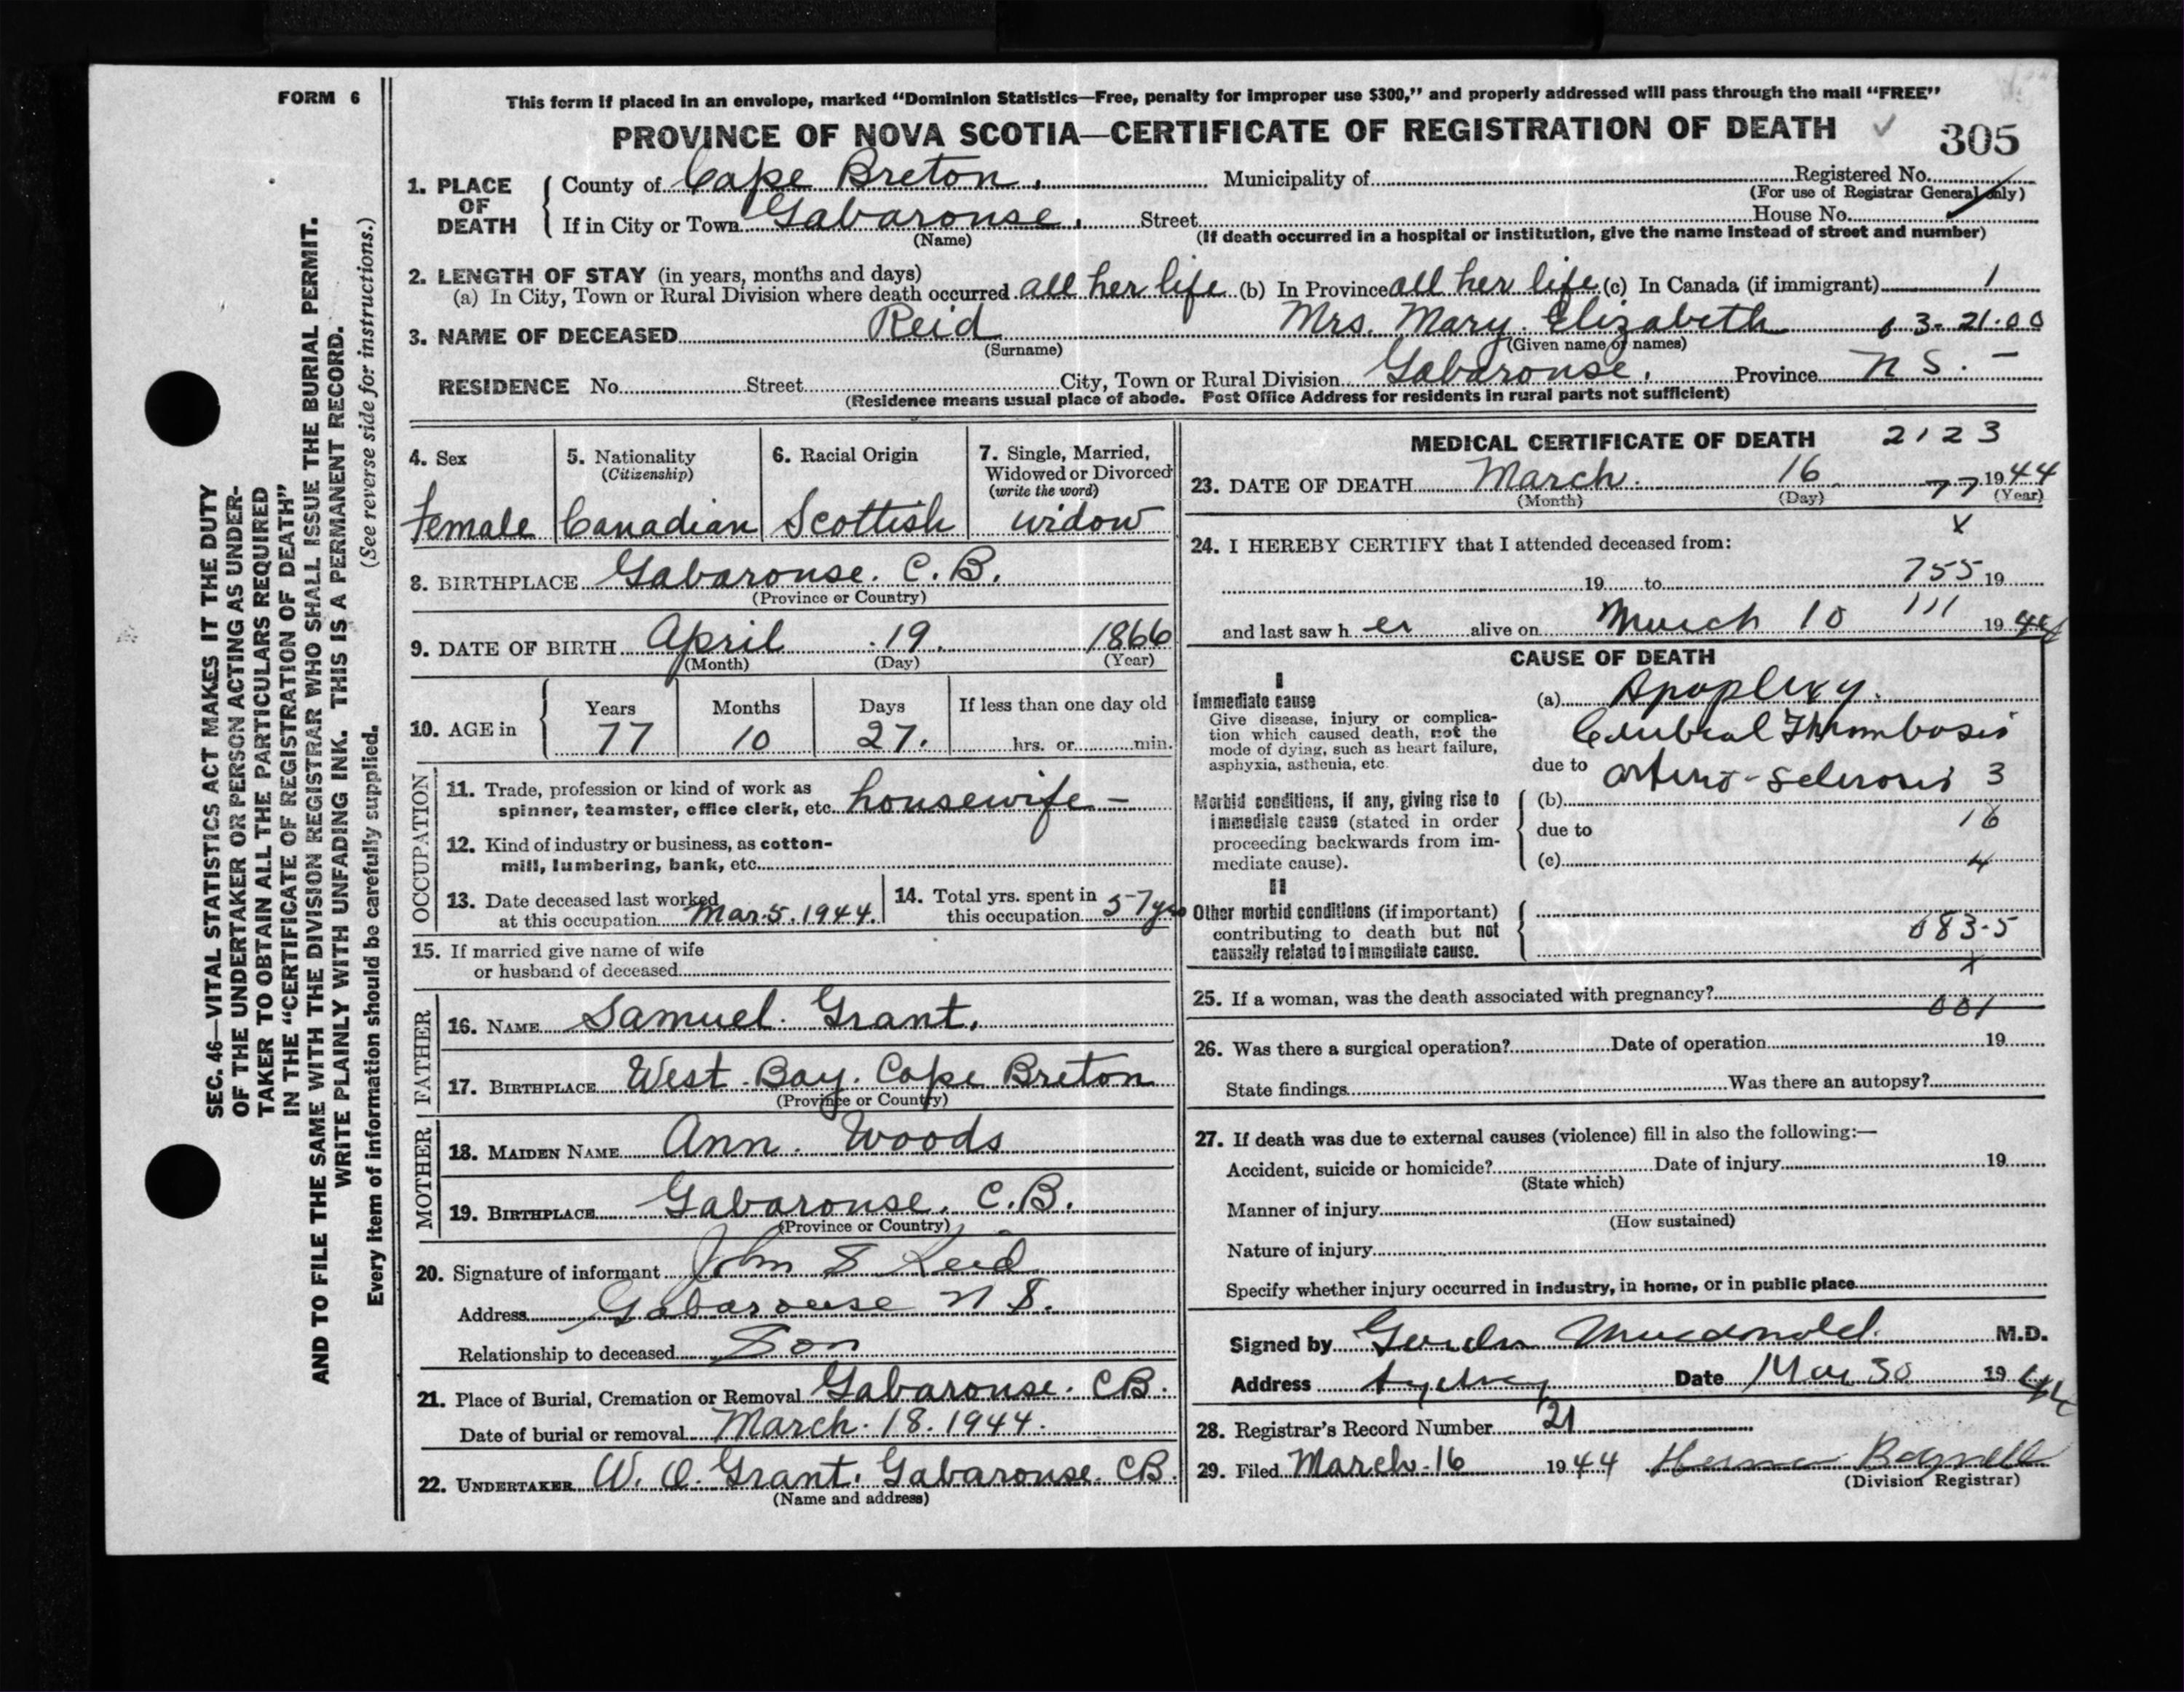 FORM 6
This form if placed in an envelope, marked "Dominion Statistics—Free, penalty for improper use $300," and properly addressed will pass through the mail "FREE"
PROVINCE OF NOVA SCOTIA—CERTIFICATE OF REGISTRATION OF DEATH
305
1. PLACE OF DEATH
County of Cape Breton. Municipality of Registered No.
(For use of Registrar General only)
If in City or Town Gabarouse. Street House No.
(Name) (If death occurred in a hospital or institution, give the name instead of street and number)
2. LENGTH OF STAY (in years, months and days)
(a) In City, Town or Rural Division where death occurred all her life (b) In Province all her life (c) In Canada (if immigrant) 1
3. NAME OF DECEASED Reid Mrs. Mary Elizabeth 03-21-00
(Surname) (Given name or names)
RESIDENCE No. Street City, Town or Rural Division Gabarouse. Province N S. —
(Residence means usual place of abode. Post Office Address for residents in rural parts not sufficient)
4. Sex
female
5. Nationality
(Citizenship)
Canadian
6. Racial Origin
Scottish
7. Single, Married,
Widowed or Divorced
(write the word)
widow
8. BIRTHPLACE Gabarouse. C.B.
(Province or Country)
9. DATE OF BIRTH April 19. 1866
(Month) (Day) (Year)
10. AGE in
Years Months Days If less than one day old
77 10 27. hrs. or min.
OCCUPATION
11. Trade, profession or kind of work as
spinner, teamster, office clerk, etc. housewife —
12. Kind of industry or business, as cotton-
mill, lumbering, bank, etc.
13. Date deceased last worked
at this occupation Mar. 5. 1944.
14. Total yrs. spent in
this occupation 57 yrs
15. If married give name of wife
or husband of deceased
FATHER
16. NAME Samuel Grant.
17. BIRTHPLACE West Bay. Cape Breton
(Province or Country)
MOTHER
18. MAIDEN NAME Ann. Woods
19. BIRTHPLACE Gabarouse. C.B.
(Province or Country)
20. Signature of informant John S Reid
Address Gabarouse N S.
Relationship to deceased Son
21. Place of Burial, Cremation or Removal Gabarouse. CB.
Date of burial or removal March. 18. 1944.
22. UNDERTAKER W. O. Grant. Gabarouse. CB.
(Name and address)
MEDICAL CERTIFICATE OF DEATH 2123
23. DATE OF DEATH March. 16 77 1944
(Month) (Day) (Year)
x
24. I HEREBY CERTIFY that I attended deceased from:
19 to 755 19
111
and last saw h er alive on March 10 1944
CAUSE OF DEATH
I
Immediate cause
Give disease, injury or complica-
tion which caused death, not the
mode of dying, such as heart failure,
asphyxia, asthenia, etc.
(a) Apoplexy.
Cerebral Thrombosis
due to Arterio-Sclerosis 3
Morbid conditions, if any, giving rise to
immediate cause (stated in order
proceeding backwards from im-
mediate cause).
(b)
16
due to
(c) 4
II
Other morbid conditions (if important)
contributing to death but not
causally related to immediate cause.
083-5
x
25. If a woman, was the death associated with pregnancy?
001
26. Was there a surgical operation? Date of operation 19
State findings Was there an autopsy?
27. If death was due to external causes (violence) fill in also the following:—
Accident, suicide or homicide? Date of injury 19
(State which)
Manner of injury
(How sustained)
Nature of injury
Specify whether injury occurred in industry, in home, or in public place
Signed by Gordon Macdonald. M.D.
Address Sydney Date Mar 30 1944
28. Registrar's Record Number 21
29. Filed March 16 1944 Bagnell
(Division Registrar)
SEC. 46—VITAL STATISTICS ACT MAKES IT THE DUTY
OF THE UNDERTAKER OR PERSON ACTING AS UNDER-
TAKER TO OBTAIN ALL THE PARTICULARS REQUIRED
IN THE "CERTIFICATE OF REGISTRATION OF DEATH"
AND TO FILE THE SAME WITH THE DIVISION REGISTRAR WHO SHALL ISSUE THE BURIAL PERMIT.
WRITE PLAINLY WITH UNFADING INK. THIS IS A PERMANENT RECORD.
Every item of information should be carefully supplied. (See reverse side for instructions.)